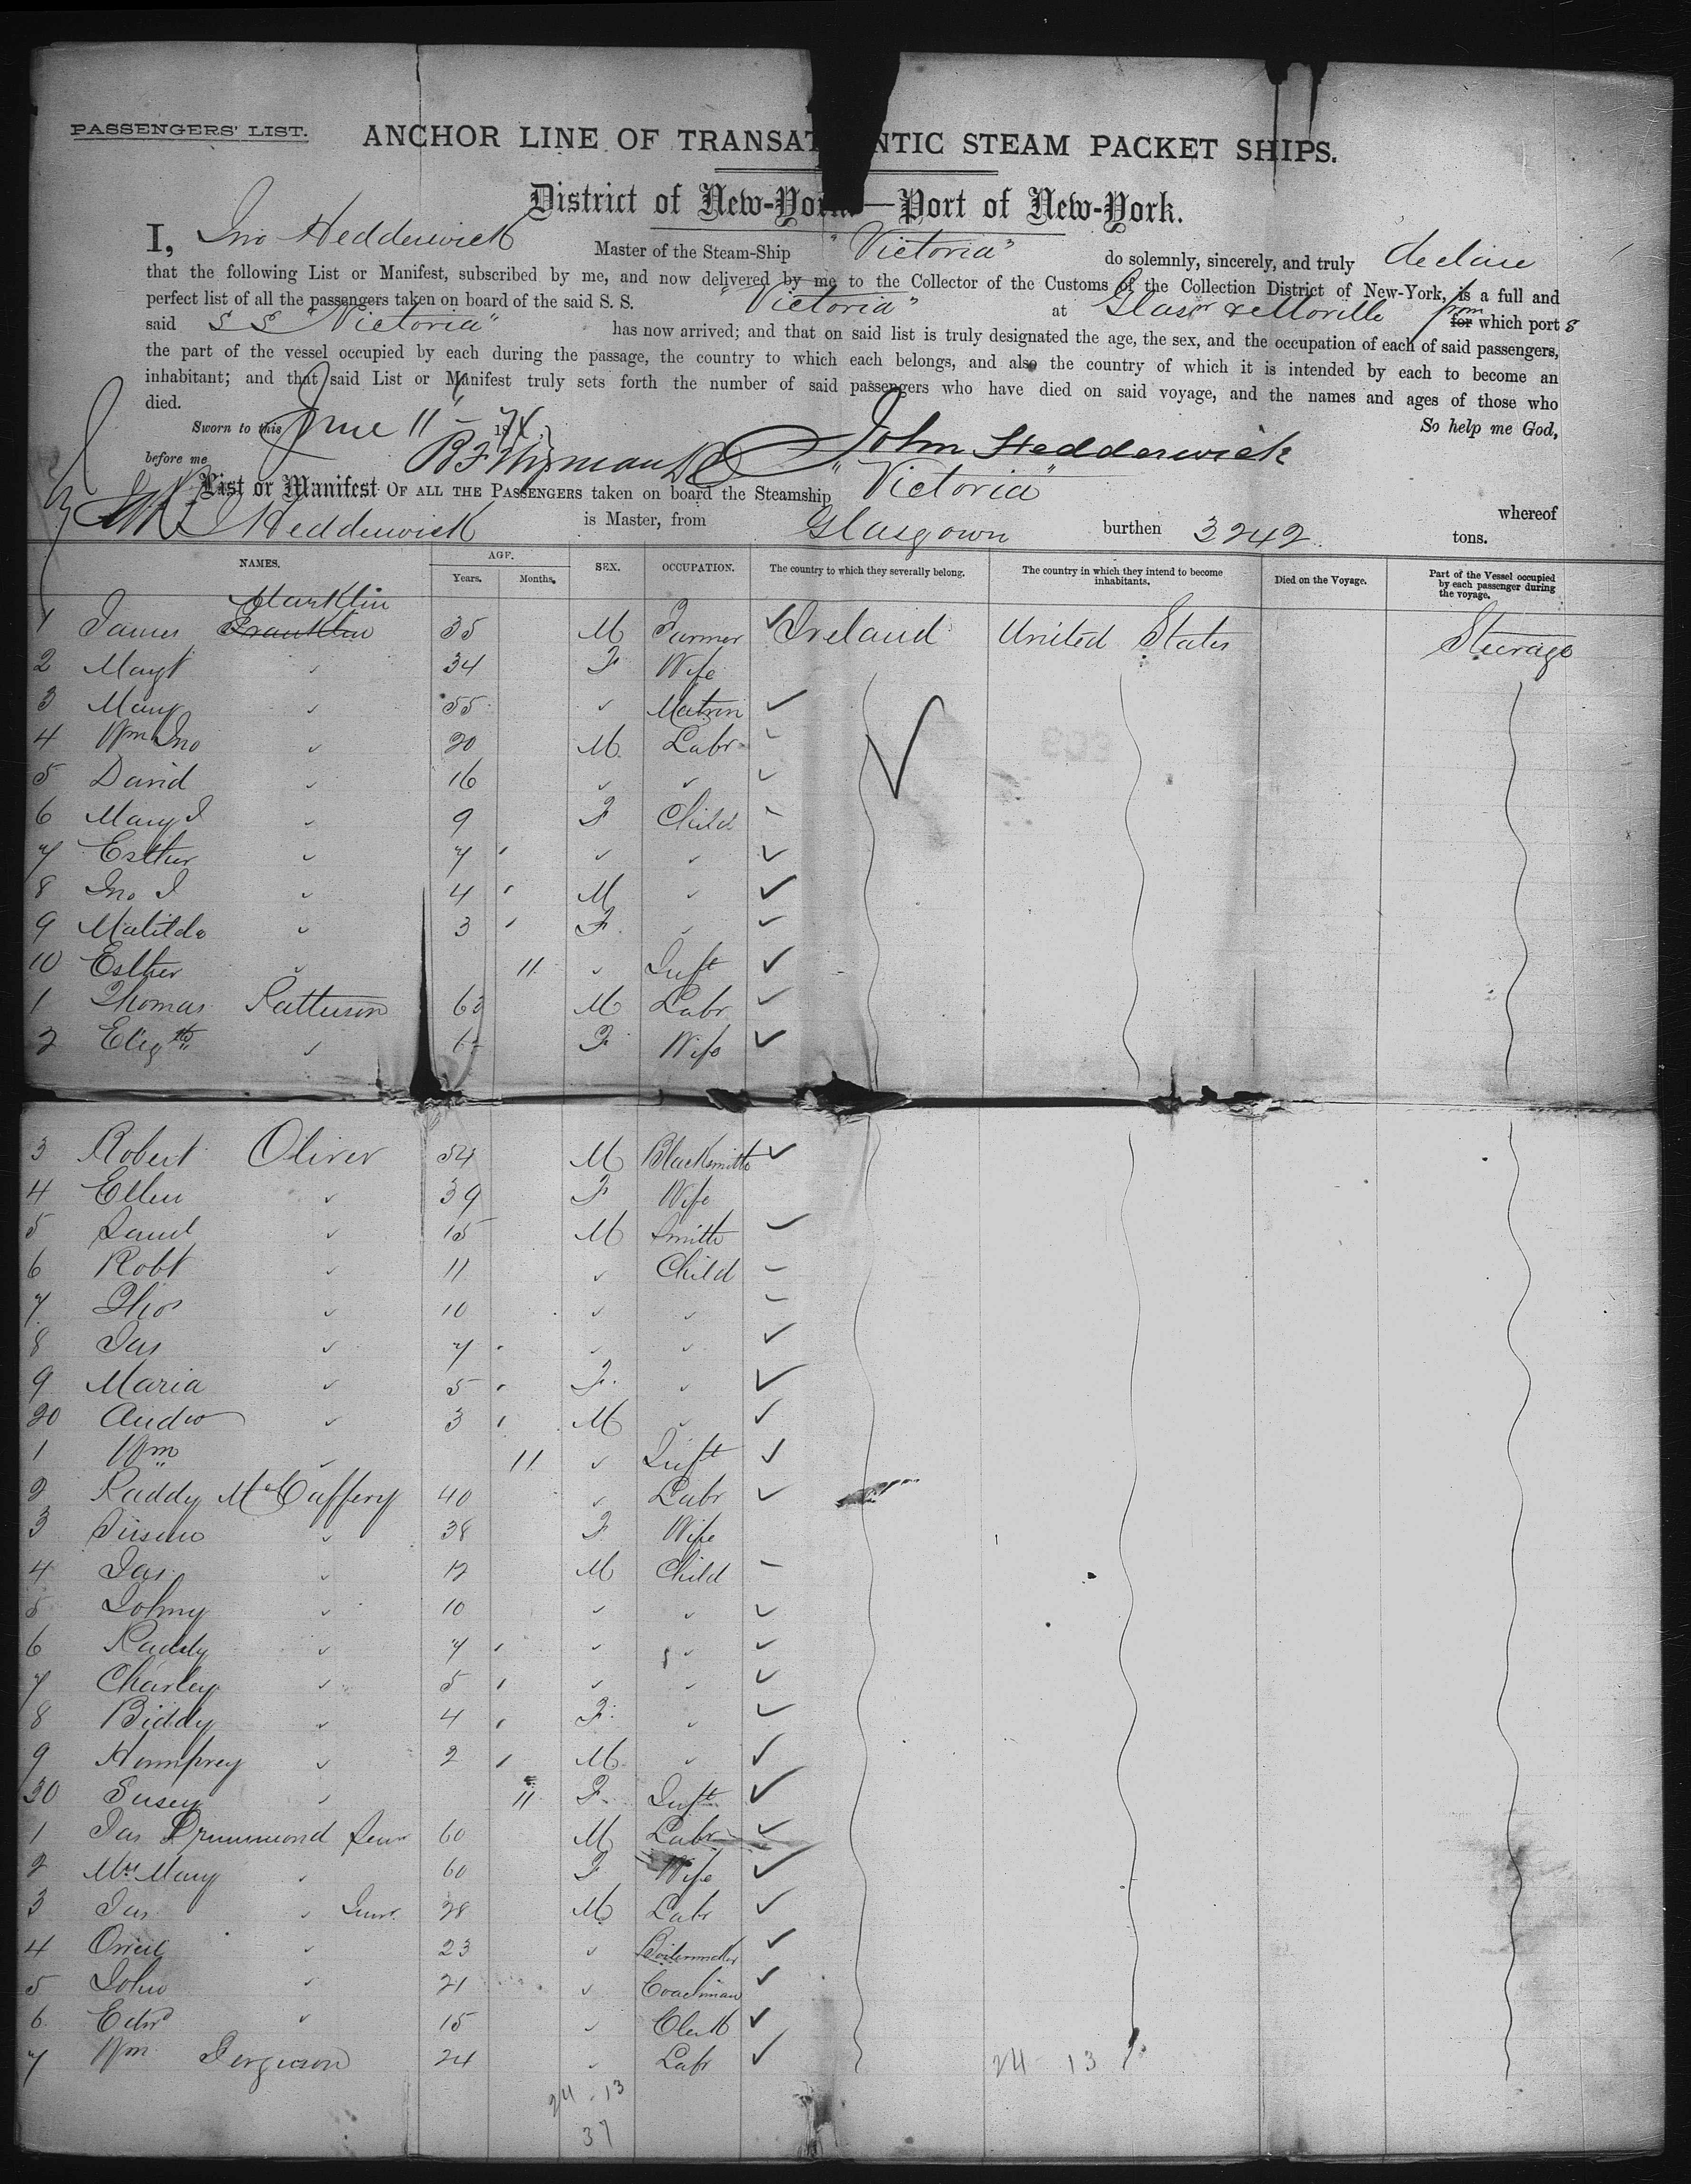 PASSENGERS' LIST.
ANCHOR LINE OF TRANSAT NTIC STEAM PACKET SHIPS.
District of New-York—Port of New-York.
I, Jno Hedderwick Master of the Steam-Ship "Victoria" do solemnly, sincerely, and truly declare
that the following List or Manifest, subscribed by me, and now delivered by me to the Collector of the Customs of the Collection District of New-York, is a full and
perfect list of all the passengers taken on board of the said S. S. "Victoria" at Glasw & Moville from for which ports
said S S "Victoria" has now arrived; and that on said list is truly designated the age, the sex, and the occupation of each of said passengers,
the part of the vessel occupied by each during the passage, the country to which each belongs, and also the country of which it is intended by each to become an
inhabitant; and that said List or Manifest truly sets forth the number of said passengers who have died on said voyage, and the names and ages of those who
died.
So help me God,
Sworn to this June 11 - 1874
John Hedderwick
before me
List or Manifest OF ALL THE PASSENGERS taken on board the Steamship "Victoria" whereof
Hedderwick is Master, from Glasgow burthen 3242 tons.
NAMES. AGE. Years. Months. SEX. OCCUPATION. The country to which they severally belong. The country in which they intend to become inhabitants. Died on the Voyage. Part of the Vessel occupied by each passenger during the voyage.
Marklin
1 James Franklin 35 M Farmer Ireland United States Steerage
2 Magt " 34 F Wife
3 Mary " 55 " Matron
4 Wm Jno " 20 M Labr
5 David " 16 " "
6 Mary J " 9 F Child
7 Esther " 7 " "
8 Jno J " 4 M "
9 Matilda " 3 F "
10 Esther " 11 " Inft
1 Thomas Patterson 63 M Labr
2 Elizth " F Wife
3 Robert Oliver 54 M Blacksmith
4 Ellen " 39 F Wife
5 Saml " 15 M Smith
6 Robt " 11 " Child
7 Thos " 10 " "
8 Jas " 7 " "
9 Maria " 5 F "
20 Andw " 3 M "
1 Wm " 11 " Inft
2 Paddy McCaffery 40 " Labr
3 " 38 F Wife
4 Jas " 12 M Child
5 Johny " 10 " "
6 Paddy " 7 " "
7 Charley " 5 " "
8 Biddy " 4 F "
9 Humphrey " 2 M "
30 Susey " 11 F Inft
1 Jas Drummond Senr 60 M Labr
2 Mrs Mary " 60 F Wife
3 Jas " Junr 28 M Labr
4 " 23 " Boilermaker
5 John " 21 " Coachman
6 Edwd " 15 " Clerk
7 Wm Ferguson 24 " Labr
24 13
24 . 13
37